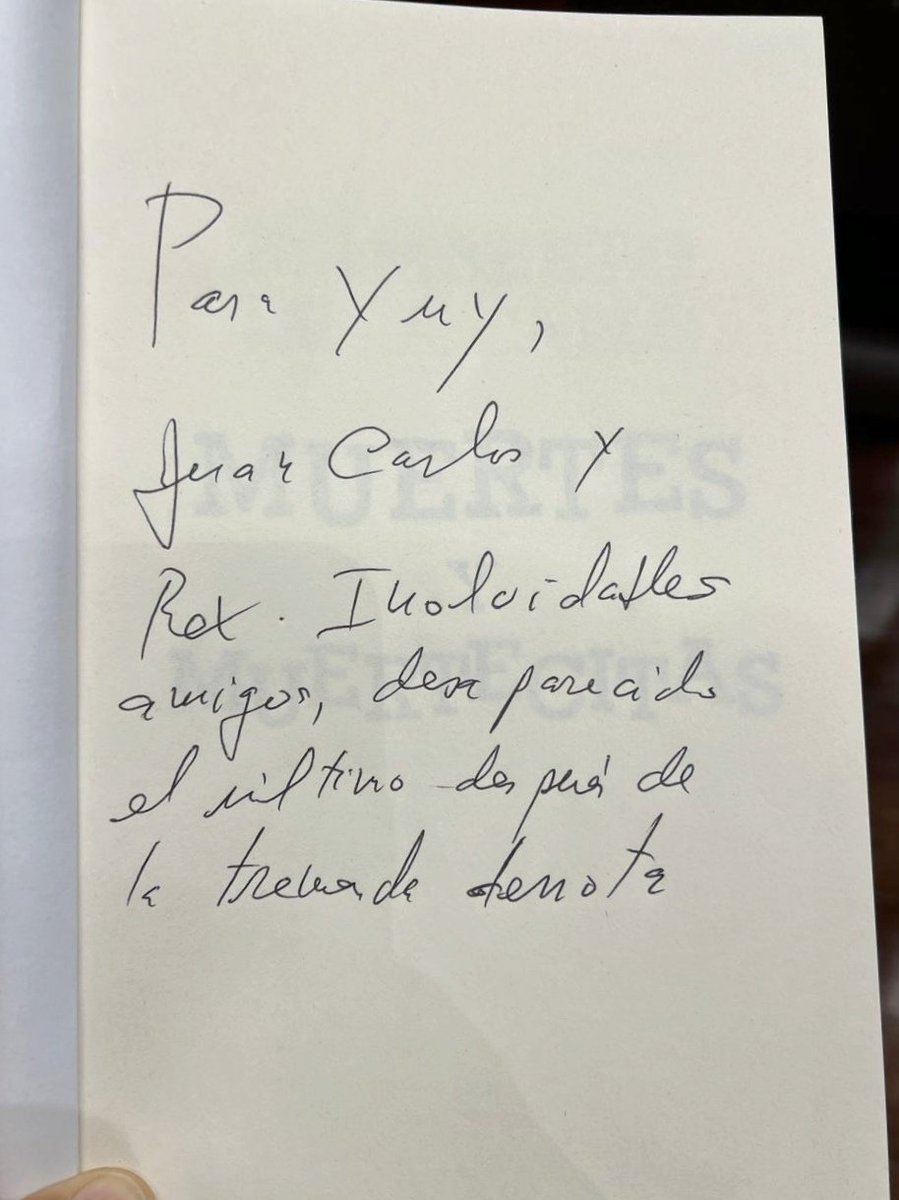 Para Yuy,
Juan Carlos y
Rex. Inolvidables
amigos, desaparecido
el último después de
la tremenda derrota
MUERTES
Y
MUERTECITAS